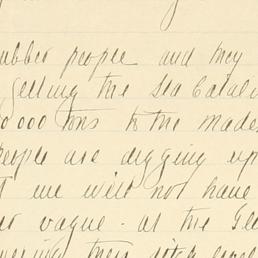 ubber people and they
selling the Sea Catal
0000 tons to the made
people are digging up
we will not have
vague - at the Gl
their